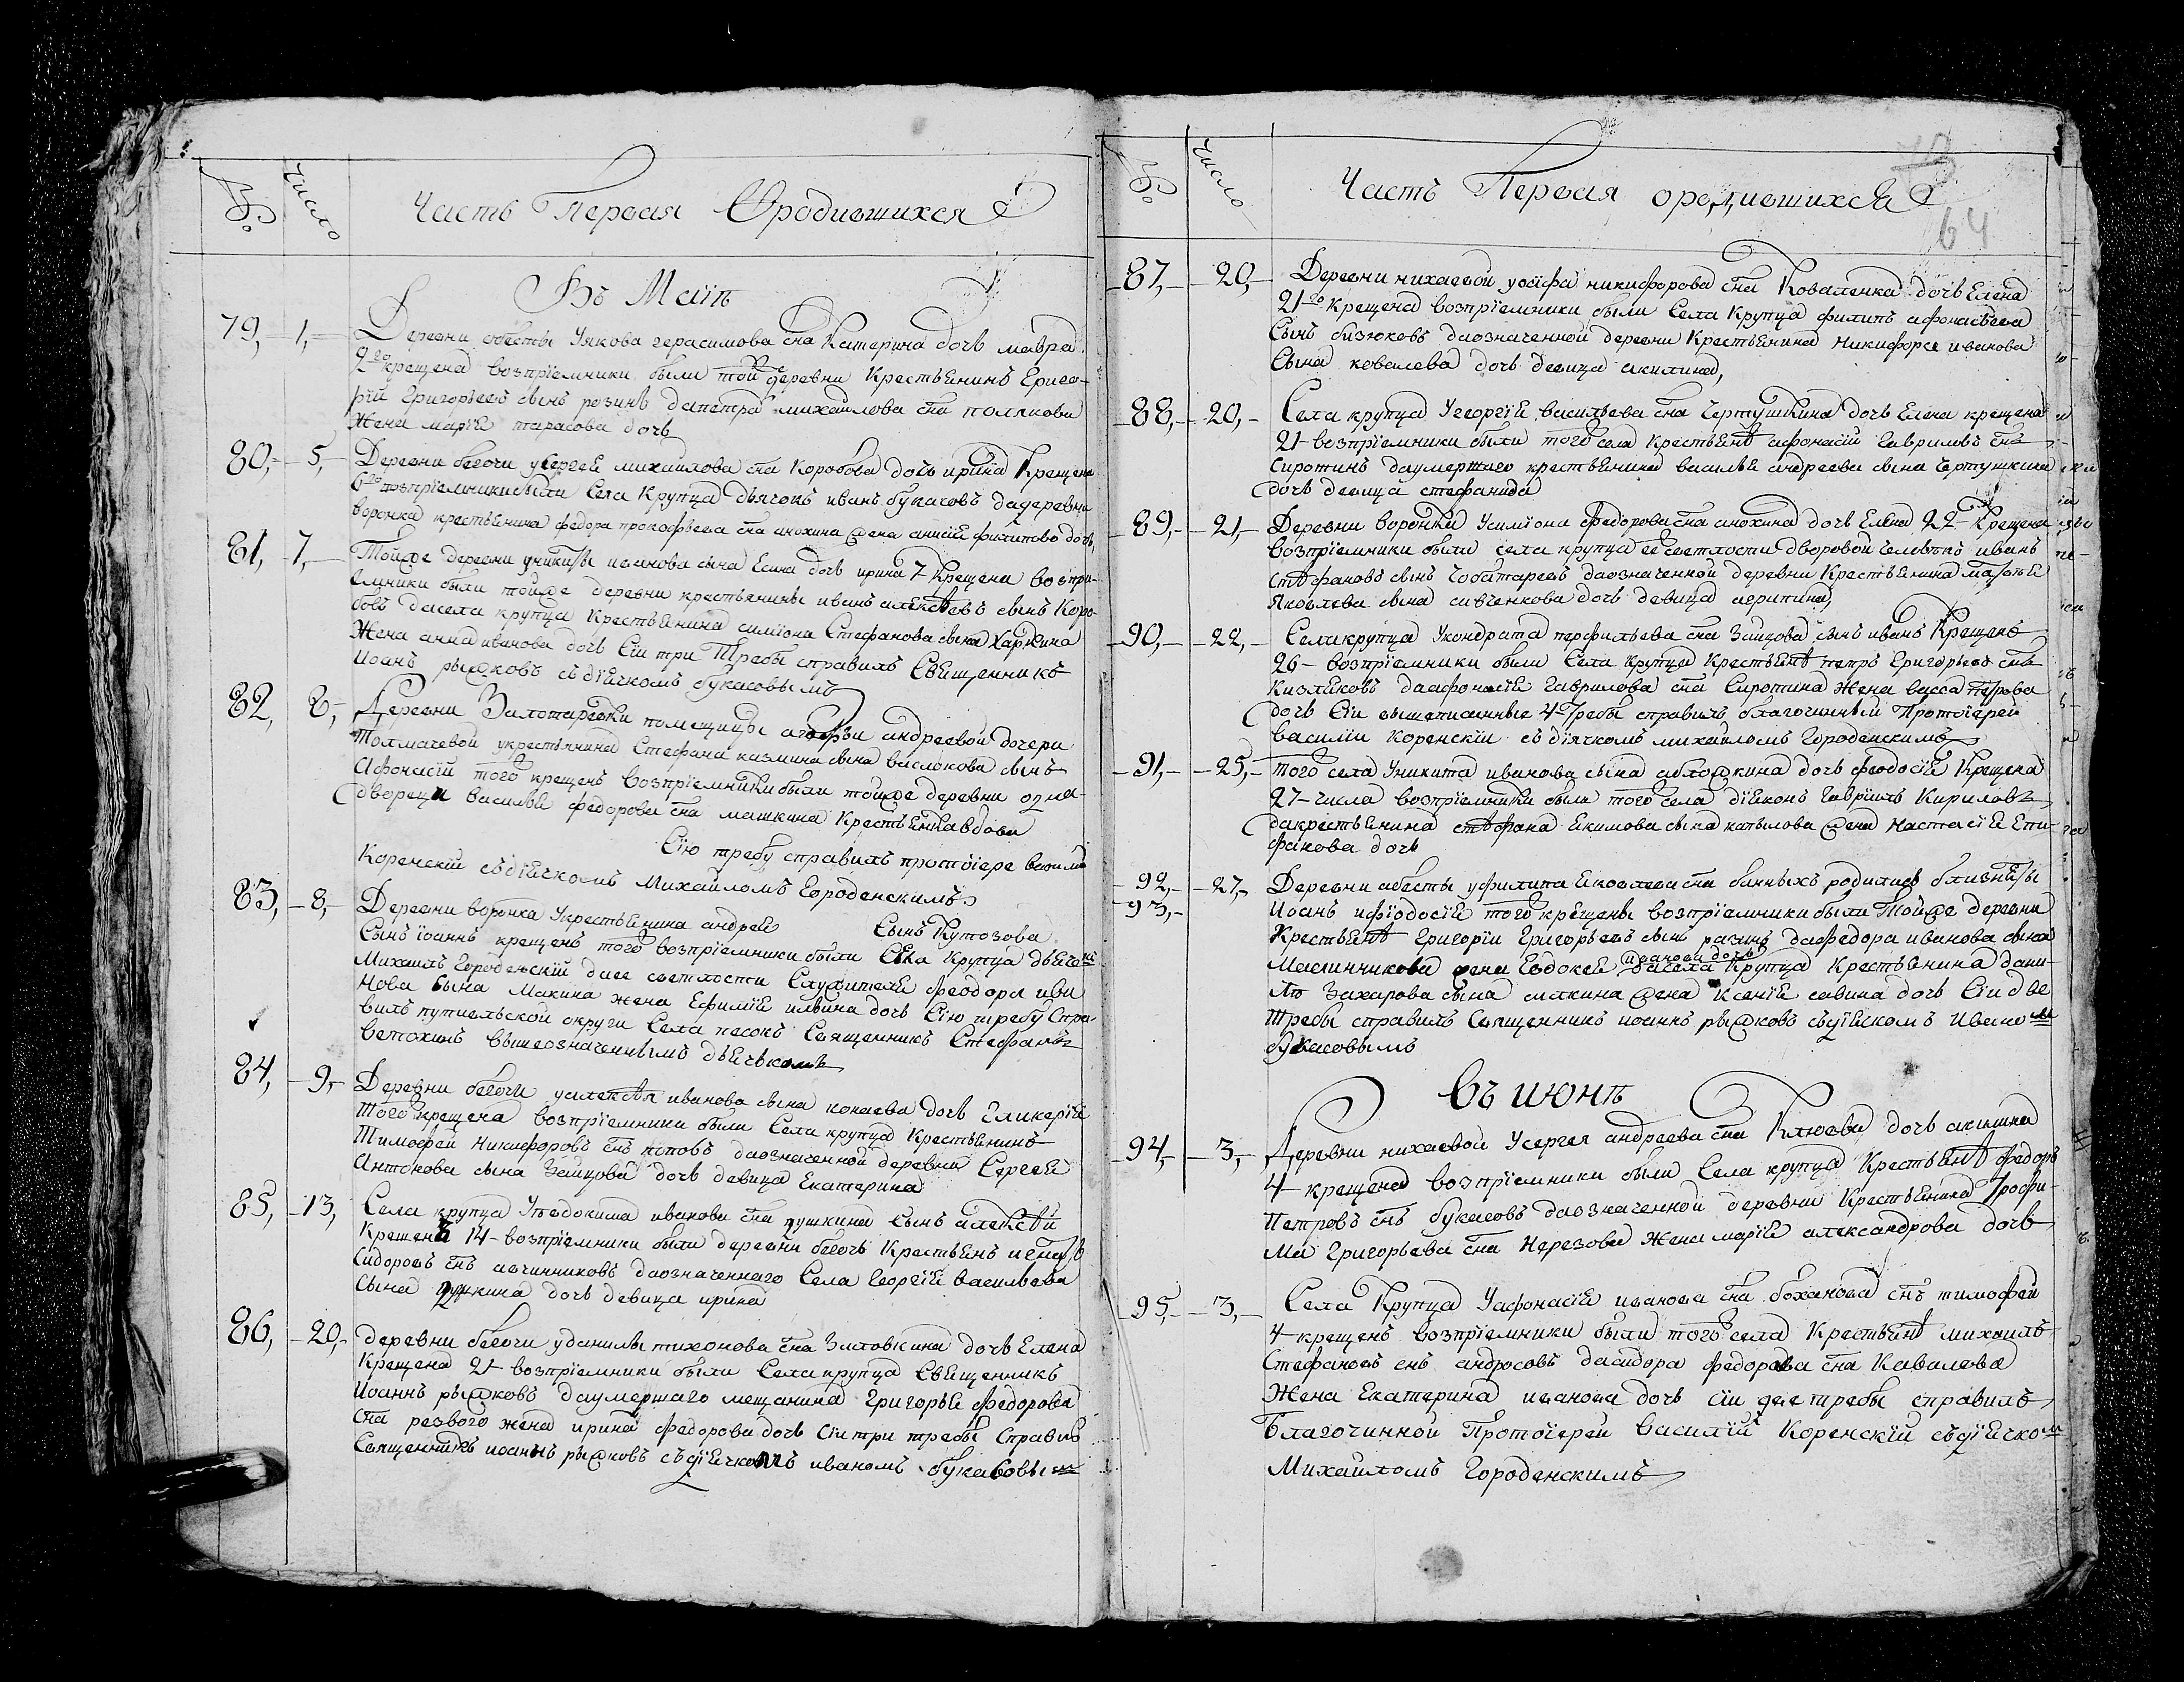 №
число
Часть Первая Ородившихся
Въ Маїѣ
79, 1, Деревни обесты Уякова герасимова сна Катерина дочь мавра
2го крещена возпрїемники были той деревни Крестьянинъ Григо-
рїй Григорьевъ сынъ разинъ дапетра михайлова сна полякова
Жена марїя тарасова дочь
80, 5, Деревни бегочи усергея михайлова сна Коробова дочь ирина Крещена
6го возпрїемники были Села Крупца дьячокъ иванъ букасовъ дадеревни
воронка крестьянина федора прокофьева сна анохина жена анисїя филипова дочь
81, 7, Тойже деревни уникиты иванова сына Есина дочь ирина 7 Крещена возпри-
емники были тойже деревни крестьянины иванъ алексѣевъ сынъ Коро-
бовъ дасела крупца Крестьянина симїона Стефанова сына Харкина
Жена анна иванова дочь Сїи три Требы справилъ Священникъ
Иоанъ рыжковъ съдїячкомъ букасовымъ
82, 8, Деревни Залотаревки помещицы агафьи андреевой дочери
Толмачевой укрестьянина Стефана казмина сына васюкова сынъ
Афонасїй того крещенъ возпрїемники были тойже деревни одна-
дворецъ василья федорова сна машкина Крестьянка вдова
Сїю требу справилъ протоїере василїй
Коренскїй съдїячкомъ Михайломъ Городенскимъ
83, 8, Деревни воронка Укрестьянина андрея Сынъ Кутозова
Сынъ їоаннъ крещенъ того возпрїемники были Села Крупца дьячекъ
Михаилъ Городенскїй даее светлости Служителя феодора ива
нова сына Макина жена Ефимїя ильина дочь Сїю требу Спра-
вилъ путивльской округи Села песокъ Священникъ Стефанъ
ветохинъ вышеозначеннымъ дьячькомъ
84, 9, Деревни бегочи уалексѣя иванова сына конаева дочь Гликерїя
того крещена возпрїемники были Села крупца Крестьянинъ
Тимофей Никифоровъ снъ поповъ даозначенной деревни Сергея
Антонова сына Зайцова дочь девица Екатерина
85, 13, Села крупца Уевдокима иванова сна пушкина Сынъ алексѣй
Крещенъ 14 возпрїемники были деревни бегочь Крестьянъ игнатъ
Сидоровъ снъ авчинниковъ даозначеннаго Села Георгїя васильева
Сына пушкина дочь девица ирина
86, 20, деревни бегочи уданилы тихонова сна Зиловкина дочь Елена
Крещена 21 возпрїемники были Села крупца Священникъ
Иоаннъ рыжковъ даумершаго мещанина Григорья Федорова
Сна резваго жена ирина федорова дочь Сїи три требы Справилъ
Священникъ иоаннъ рыжковъ съдїячкомъ иваномъ букасовымъ
№
число
Часть Первая ородившихся
64
87, 20, Деревни нихаевой уосїфа никифорова сна Коваленка дочь Елена
21го Крещена возпрїемники были Села Крупца филипъ афонасьева
Сынъ бизюковъ даозначенной деревни Крестьянина Никифора иванова
Сына ковалева дочь девица акилина,
88, 20, Села крупца Угеоргїя васильева сна Чертушкина дочь Елена крещена
21 возпрїемники были того села крестьянинъ афонасїй Гавриловъ снъ
Сиротинъ даумершаго крестьянина василья андреева сына Чертушкина
дочь девица стефанида
89, 21, Деревни воронка Усимїона федорова сна анохина дочь Елена 22 Крещена
возпрїемники были села крупца ее светлости дворовой человѣкъ иванъ
Стефановъ сынъ Чоботаревъ даозначенной деревни Крестьянина матвея
Яковлева сына савченкова дочь девица агрипина,
90, 22, Села крупца Укондрата перфильева сна Зайцова сынъ иванъ Крещенъ
26 возпрїемники были Села Крупца Крестьянинъ петръ Григорьевъ снъ
Кизляковъ даафонасїя Гаврилова сна Сиротина Жена васса петрова
дочь Сїи вышеписанные 4 требы справилъ благочинный Протоїерей
василїи Коренскїи съдїячкомъ михайломъ Городенскимъ
91, 25, того села Уникита иванова сына аблажкина дочь феодосїя Крещена
27 числа возпрїемники были того села дїяконъ Гаврїилъ Кириловъ
дакрестьянина стефана Екимова сына капылова жена Настасїя Епи-
фанова дочь
92, 27, Деревни абесты уфилипа Яковлева сна банныхъ родилась близнеты
93, Иоанъ ифїодосїя того крещены возпрїемники были тойже деревни
Крестьянинъ григорїи Григорьевъ сынъ разинъ дафедора иванова сына
Маслинникова жена Евдокея иванова дочь дасела Крупца Крестьянина дани-
ло Захарова сына силкина жена Ксенїя савина дочь Сїи две
Требы справилъ Священникъ иоаннъ рыжковъ съдїяскомъ Иваном
букасовымъ
Въ июнѣ
94, 3, Деревни нихаевой Усергея андреева сна Клюева дочь акилина
4 крещена возпрїемники были Села крупца Крестьянинъ федоръ
Петровъ снъ букасовъ даозначенной деревни Крестьянина Трофи-
ма Григорьева сна Нерезова Жена марїя александрова дочь
95, 3, Села Крупца Уафонасїя иванова сна боханова снъ тимофей
4 крещенъ возпрїемники были того села Крестьянинъ михаилъ
Стефановъ снъ андросовъ дасидора федорова сна Кавалева
Жена Екатерина иванова дочь сїи две требы справилъ
Благочинной Протоїерей Василїй Коренскїй съдїячком
Михайломъ Городенскимъ